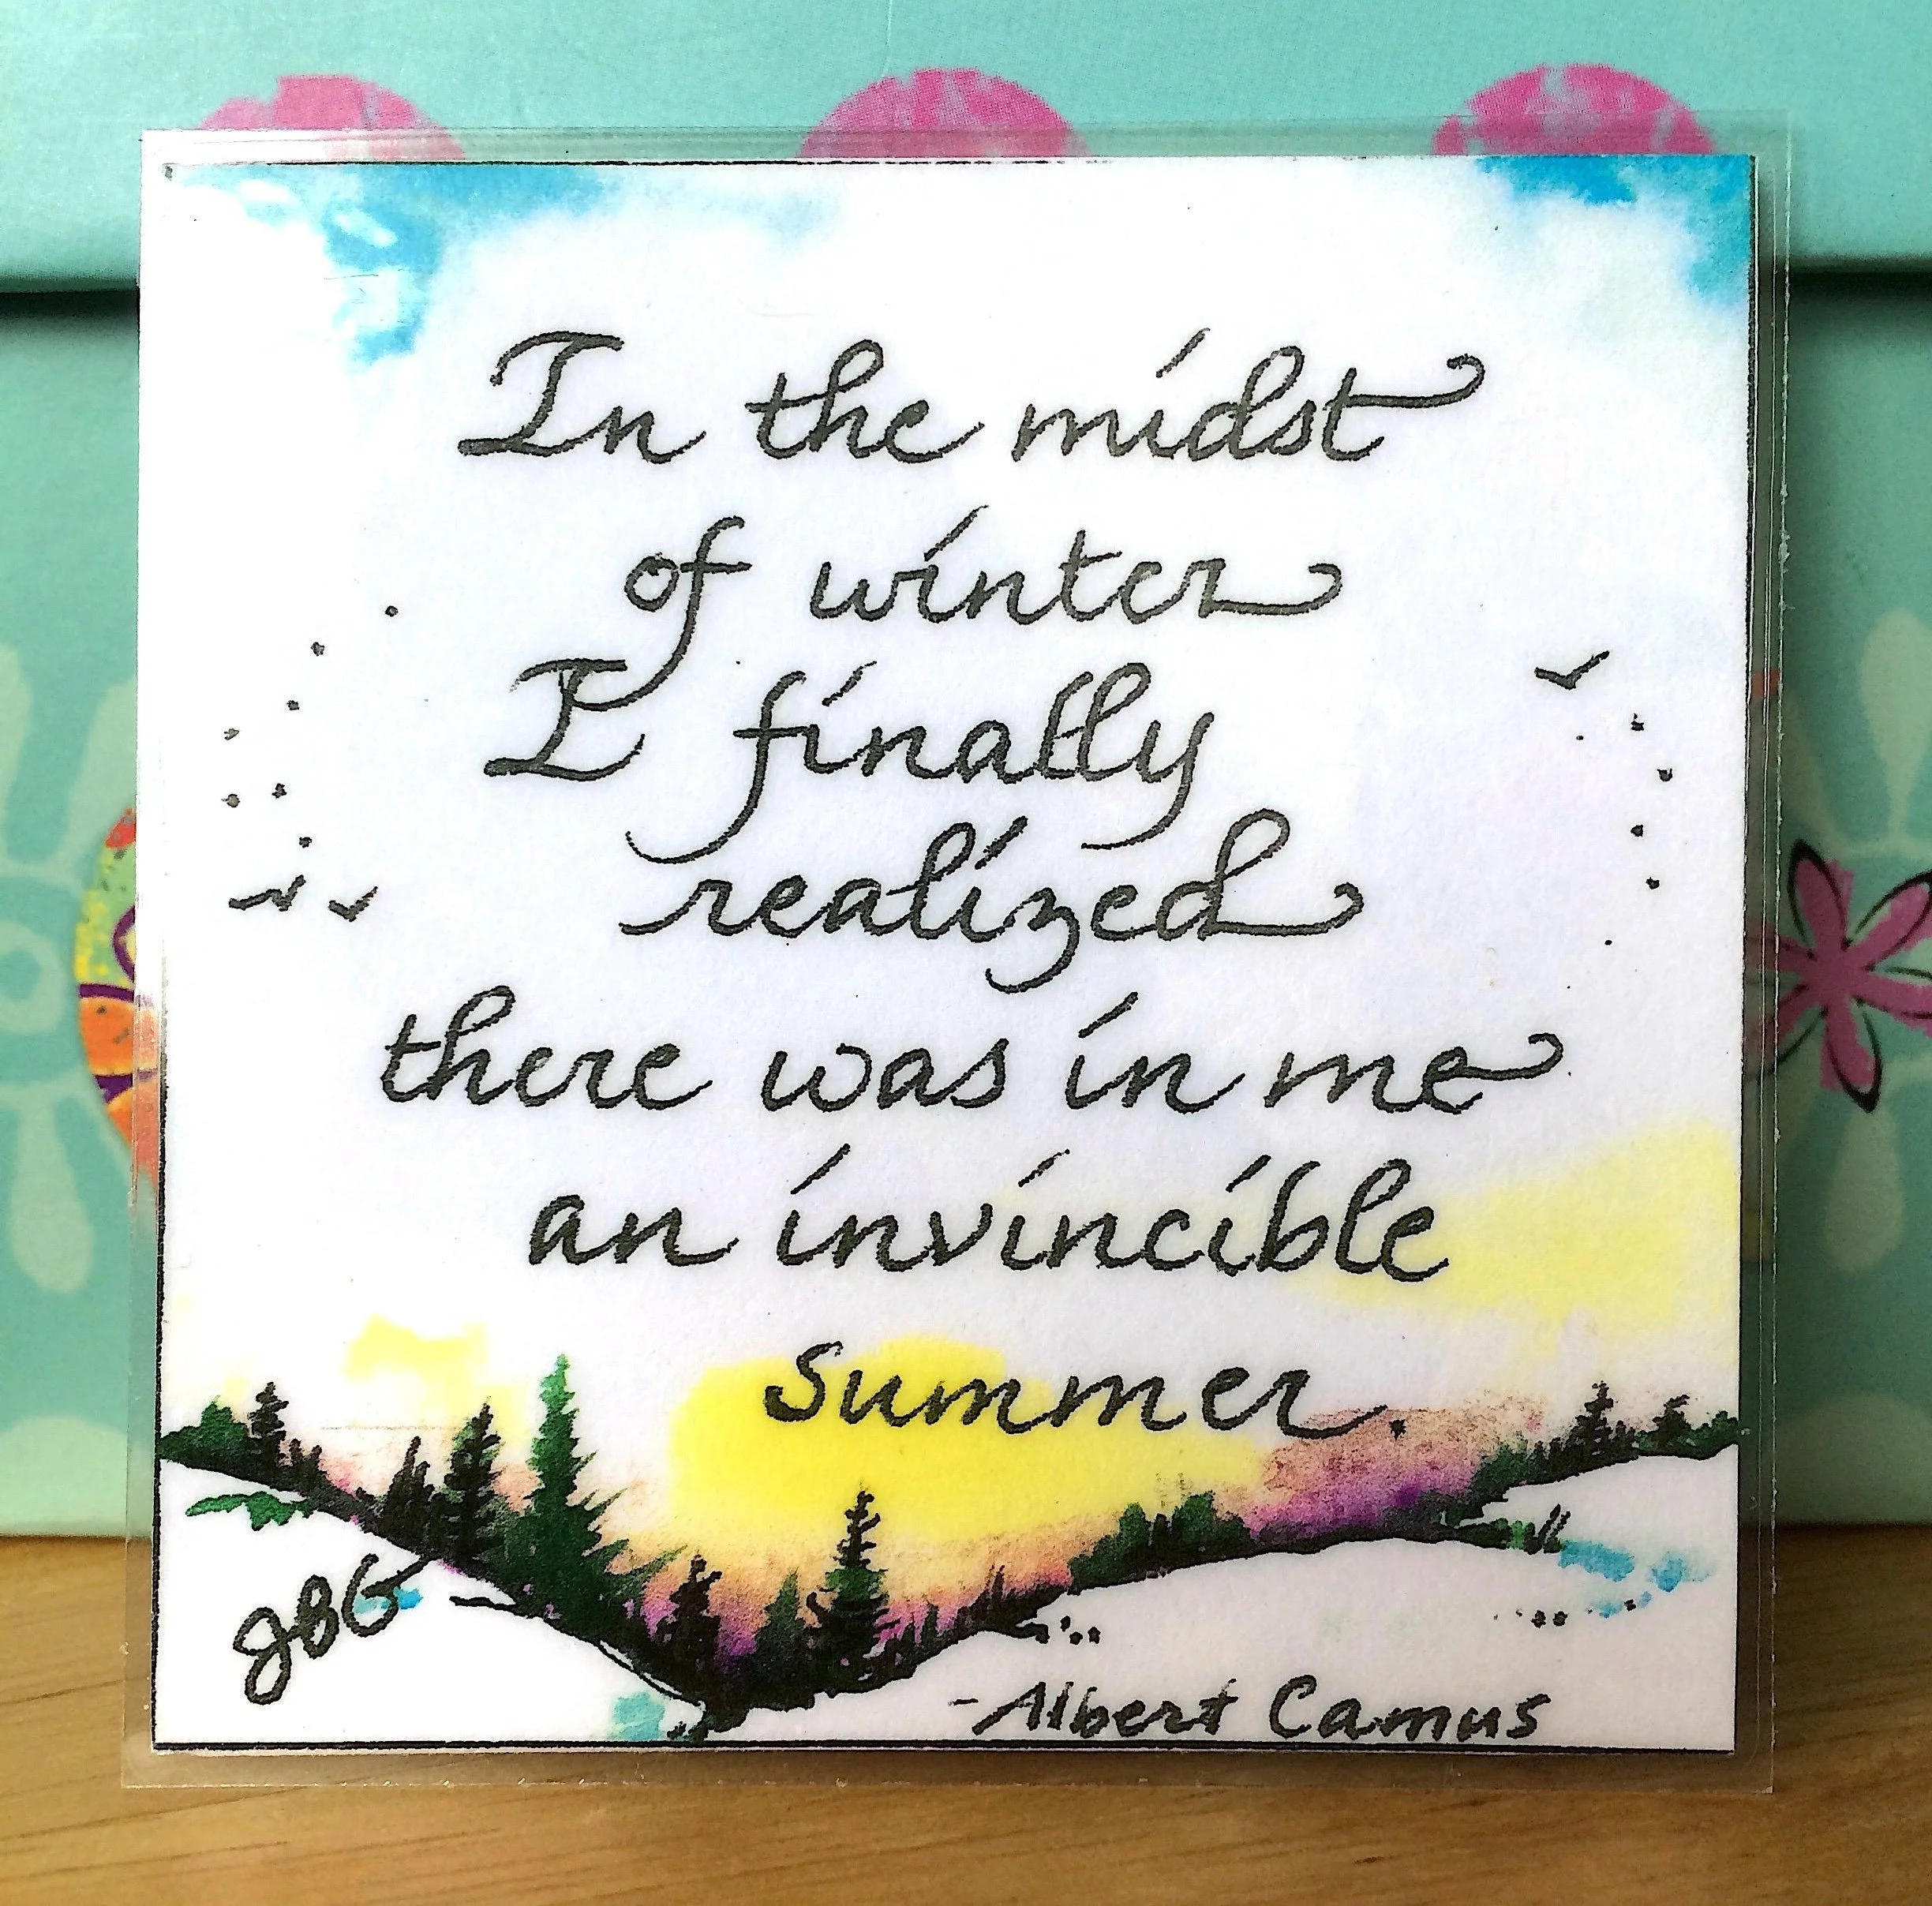 In the midst
of winter
I finally
realized
there was in me
an invincible
summer.
JBG
-Albert Camus